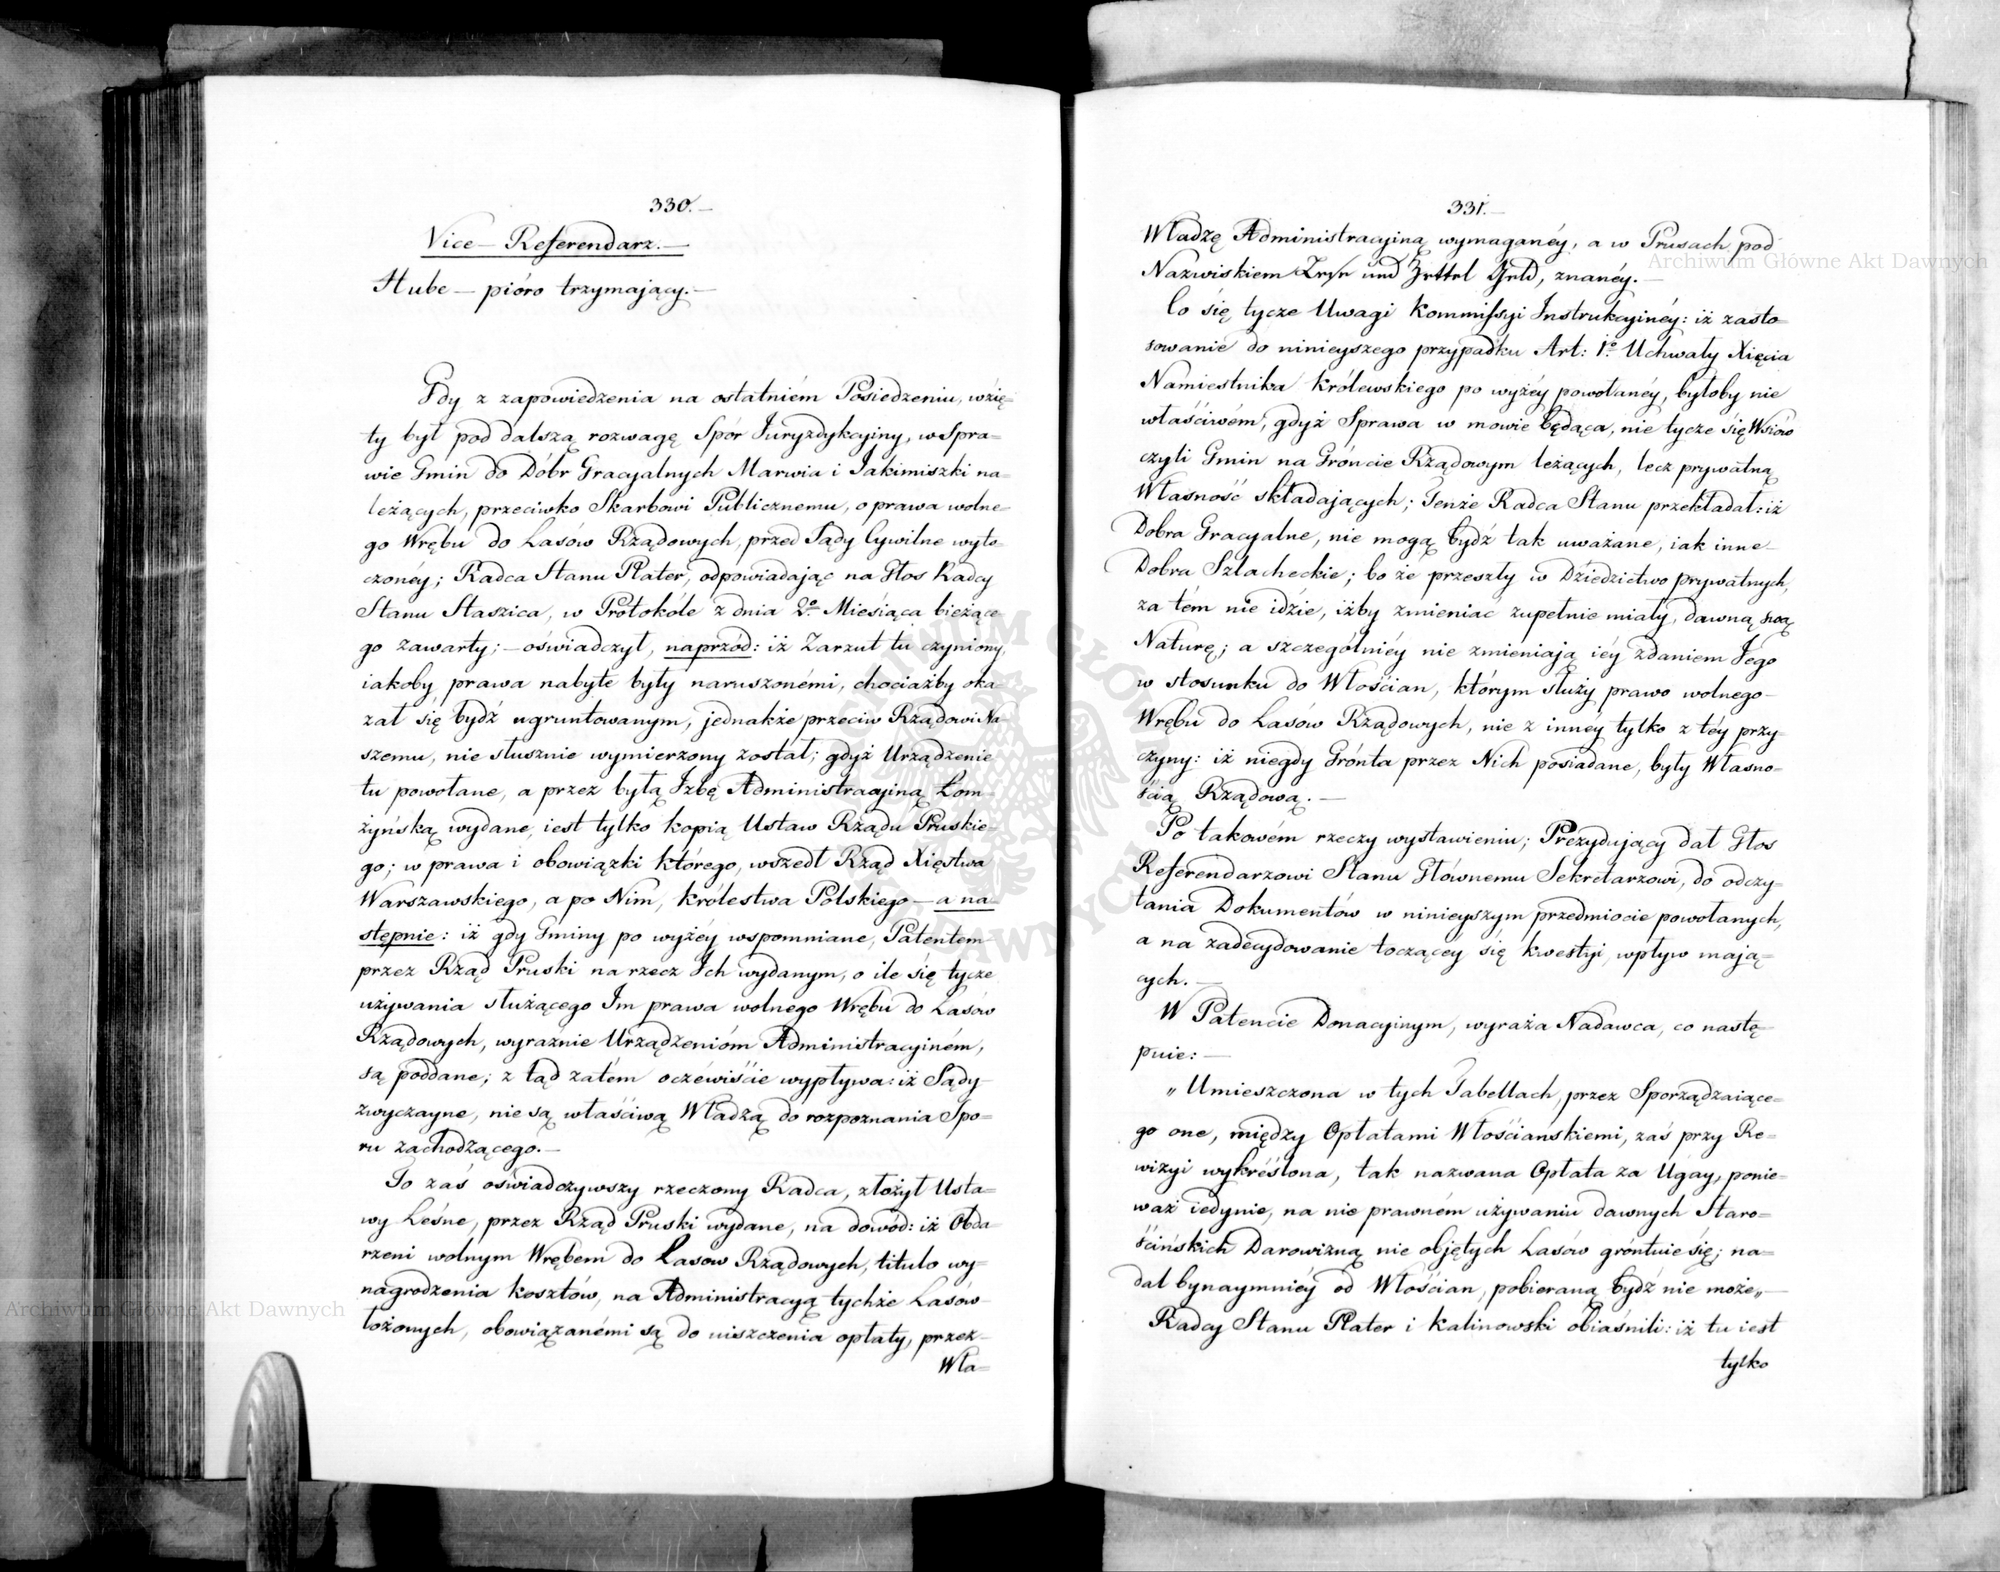 330.—
Vice — Referendarz.—
Hube — pióro trzymający.—
Gdy z zapowiedzenia na ostatniém Posiedzeniu, wzię=
ty był pod dalszą rozwagę Spór Juryzdykcyiny, w Spra=
wie Gmin do Dóbr Gracyalnych Marwia i Jakimiszki na=
leżących, przeciwko Skarbowi Publicznemu, o prawa wolne=
go Wrębu do Lasów Rządowych, przed Sądy Cywilne wyto=
czonéy; Radca Stanu Plater, odpowiadając na Głos Radcy
Stanu Staszica, w Protokóle z dnia 2º Miesiąca bieżące=
go zawarty; — oświadczył, naprzód: iż Zarzut tu czyniony,
iakoby prawa nabyte były naruszonémi, chociażby oka=
zał się bydź ugruntowanym, jednakże przeciw Rządowi Na=
szemu, nie słusznie wymierzony został; gdyż Urządzenie
tu powołane, a przez byłą Izbę Administracyiną Łom=
żyńską wydane, iest tylko kopią Ustaw Rządu Pruskie=
go; w prawa i obowiązki którego, wszedł Rząd Xięstwa
Warszawskiego, a po Nim, Królestwa Polskiego — a na=
stępnie: iż gdy Gminy po wyżéy wspomniane, Patentem
przez Rząd Pruski na rzecz Ich wydanym, o ile się tycze
używania służącego Im prawa wolnego Wrębu do Lasów
Rządowych, wyraźnie Urządzenióm Administracyiném,
są poddane; z tąd zatém oczéwiście wypływa: iż Sądy
zwyczayne, nie są właściwą Władzą do rozpoznania Spo=
ru zachodzącego.—
To zaś oświadczywszy rzeczony Radca, złożył Usta=
wy Leśne, przez Rząd Pruski wydane, na dowód: iż Obda=
rzeni wolnym Wrębem do Lasow Rządowych, titulo wy=
nagrodzenia kosztów, na Administracyą tychże Lasów
łożonych, obowiązanémi są do uiszczenia opłaty, przez
Wła=
331.—
Władzę Administracyiną wymaganéy, a w Prusach pod
Nazwiskiem und Zettel Geld, znanéy.—
Co się tycze Uwagi Kommissyi Instrukcyinéy: iż zasto=
sowanie do ninieyszego przypadku Art: 1º Uchwały Xięcia
Namiestnika Królewskiego po wyżéy powołanéy, byłoby nie
właściwém, gdyż Sprawa w mowie będąca, nie tycze się Wsiów
czyli Gmin na Gróncie Rządowym leżących, lecz prywatną
Własność składających; Tenże Radca Stanu przekładał: iż
Dobra Gracyalne, nie mogą bydź tak uważane, iak inne
Dobra Szlacheckie; bo że przeszły w Dziedzictwo prywatnych,
za tém nie idzie, iżby zmieniac zupełnie miały, dawną swą
Naturę; a szczególniéy nie zmieniają iéy zdaniem Jego
w stosunku do Włościan, którym służy prawo wolnego
Wrębu do Lasów Rządowych, nie z innéy tylko z téy przy=
czyny: iż niegdy Grónta przez Nich posiadane, były Własno=
ścią Rządową.—
Po takowém rzeczy wystawieniu; Prezydujący dał Głos
Referendarzowi Stanu Głównemu Sekretarzowi, do odczy=
tania Dokumentów w ninieyszym przedmiocie powołanych,
a na zadecydowanie toczącey się kwestyi, wpływ mają=
cych.—
W Patencie Donacyinym, wyraża Nadawca, co nastę=
puie:—
„Umieszczona w tych Tabellach, przez Sporządzaiące=
go one, między Opłatami Włościańskiemi, zaś przy Re=
wizyi wykréślona, tak nazwana Opłata za Ugay, ponie=
waż iedynie, na nie prawném używaniu dawnych Staro=
ścińskich Darowizną nie objętych Lasów gróntuie się; na=
dal bynaymniéy od Włościan, pobieraną bydź nie może„—
Radcy Stanu Plater i Kalinowski obiaśnili: iż tu iest
tylko
Archiwum Główne Akt Dawnych
Archiwum Główne Akt Dawnych